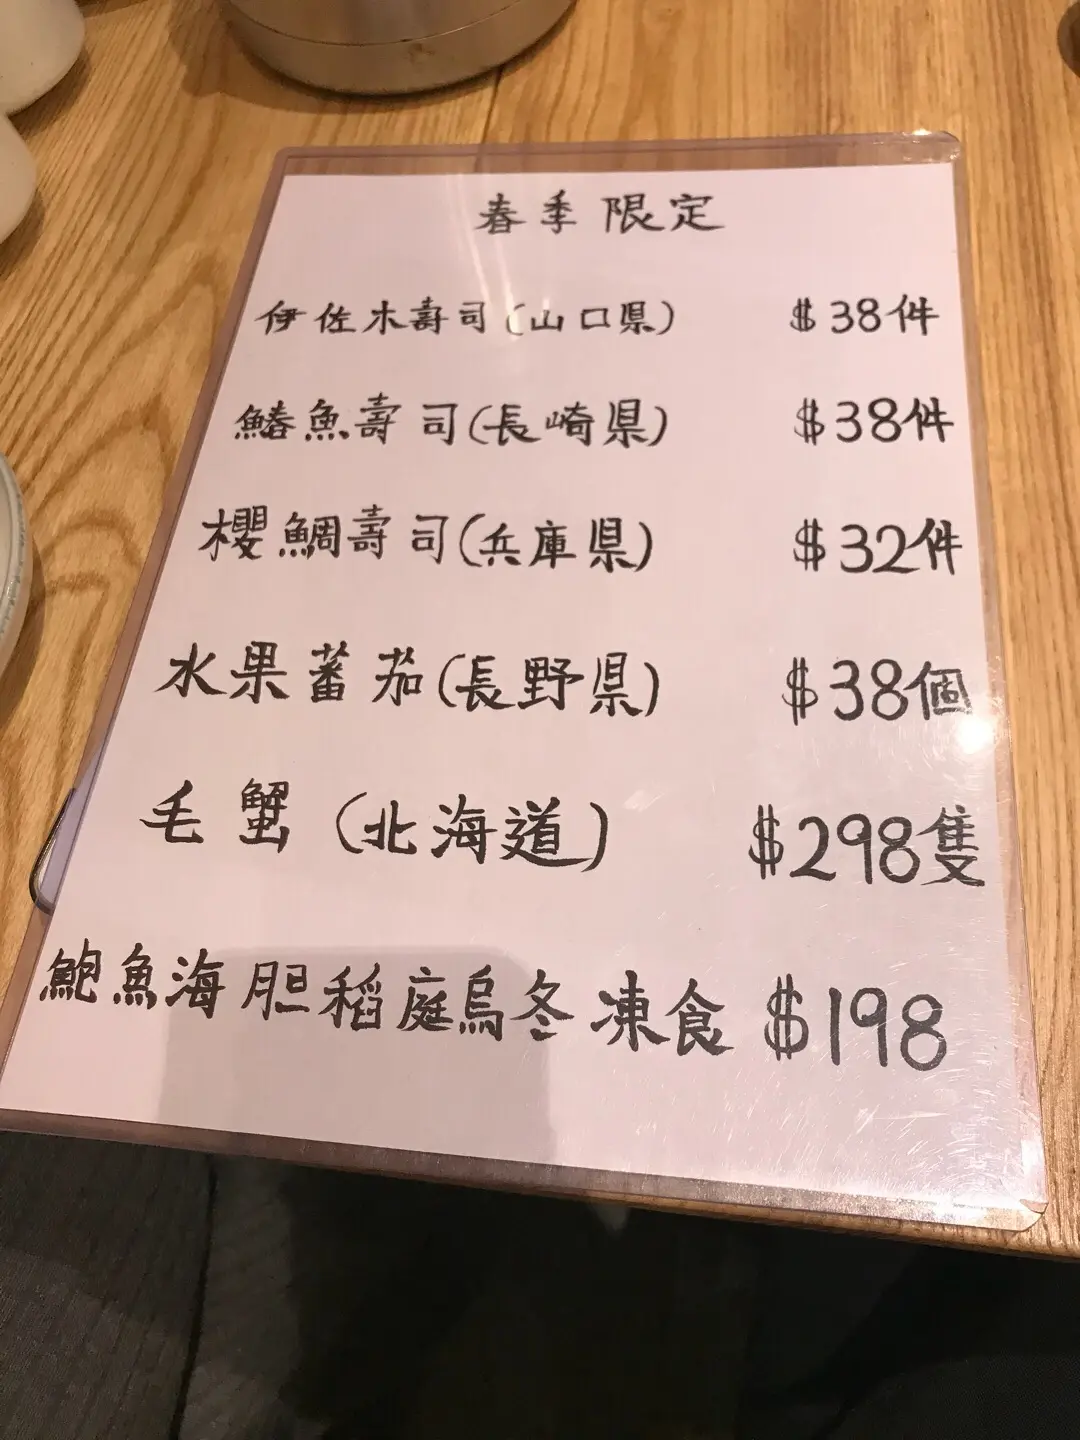 春季限定
伊佐木壽司(山口県) $38件
鰆魚壽司(長崎県) $38件
櫻鯛壽司(兵庫県) $32件
水果蕃茄(長野県) $38個
毛蟹(北海道) $298隻
鮑魚海胆稻庭烏冬凍食 $198